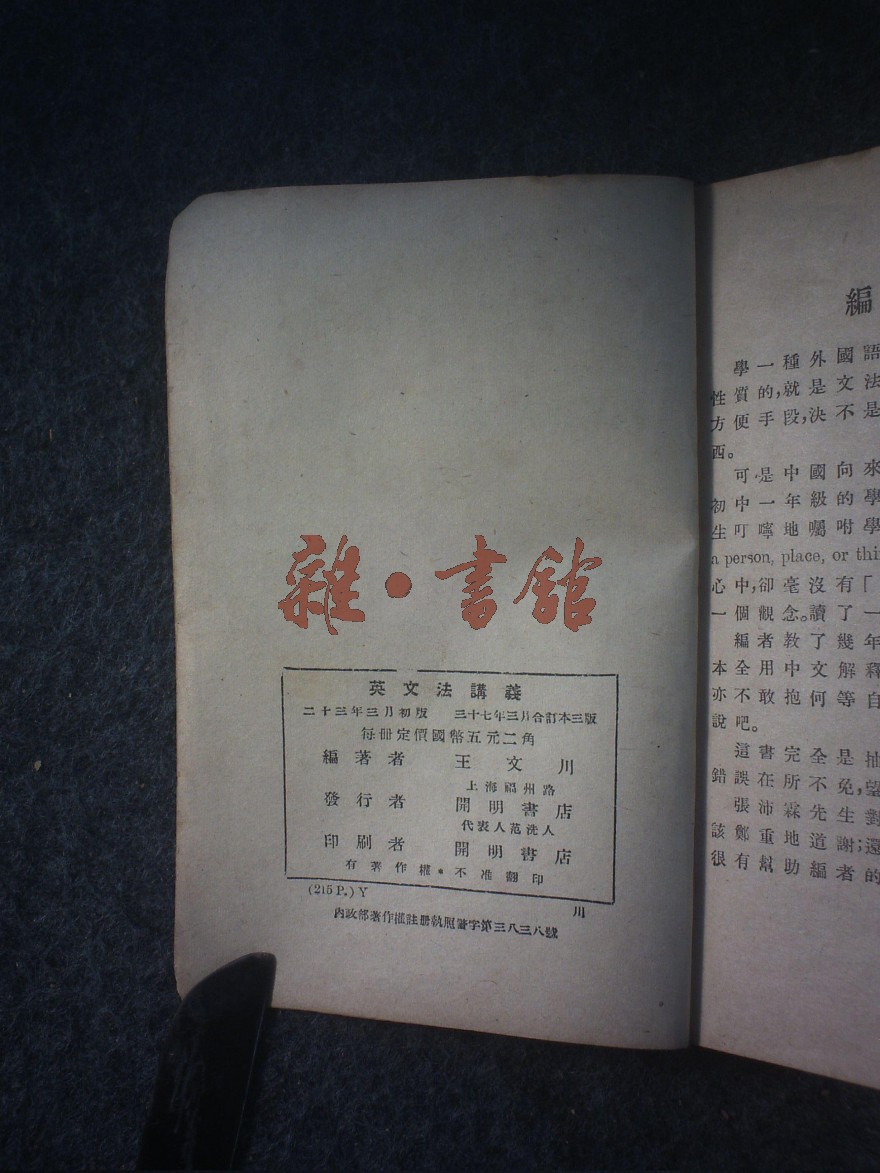 雜·書館
英文法講義
二十三年三月初版 三十七年三月合訂本三版
每冊定價國幣五元二角
編著者 王文川
上海福州路
發行者 開明書店
代表人范洗人
印刷者 開明書店
有著作權*不准翻印
(215 P.) Y 川
內政部著作權註册執照警字第三八三八號
編
學一種外國語
性質的,就是文法
方便手段,決不是
西。
可是中國向來
初中一年級的學
生叮嚀地囑咐學
a person, place, or thi
心中,卻毫沒有「
一個觀念。讀了一
編者教了幾年
本全用中文解釋
亦不敢抱何等自
說吧。
這書完全是抽
錯誤在所不免,望
張沛霖先生對
該鄭重地道謝;還
很有幫助編者的